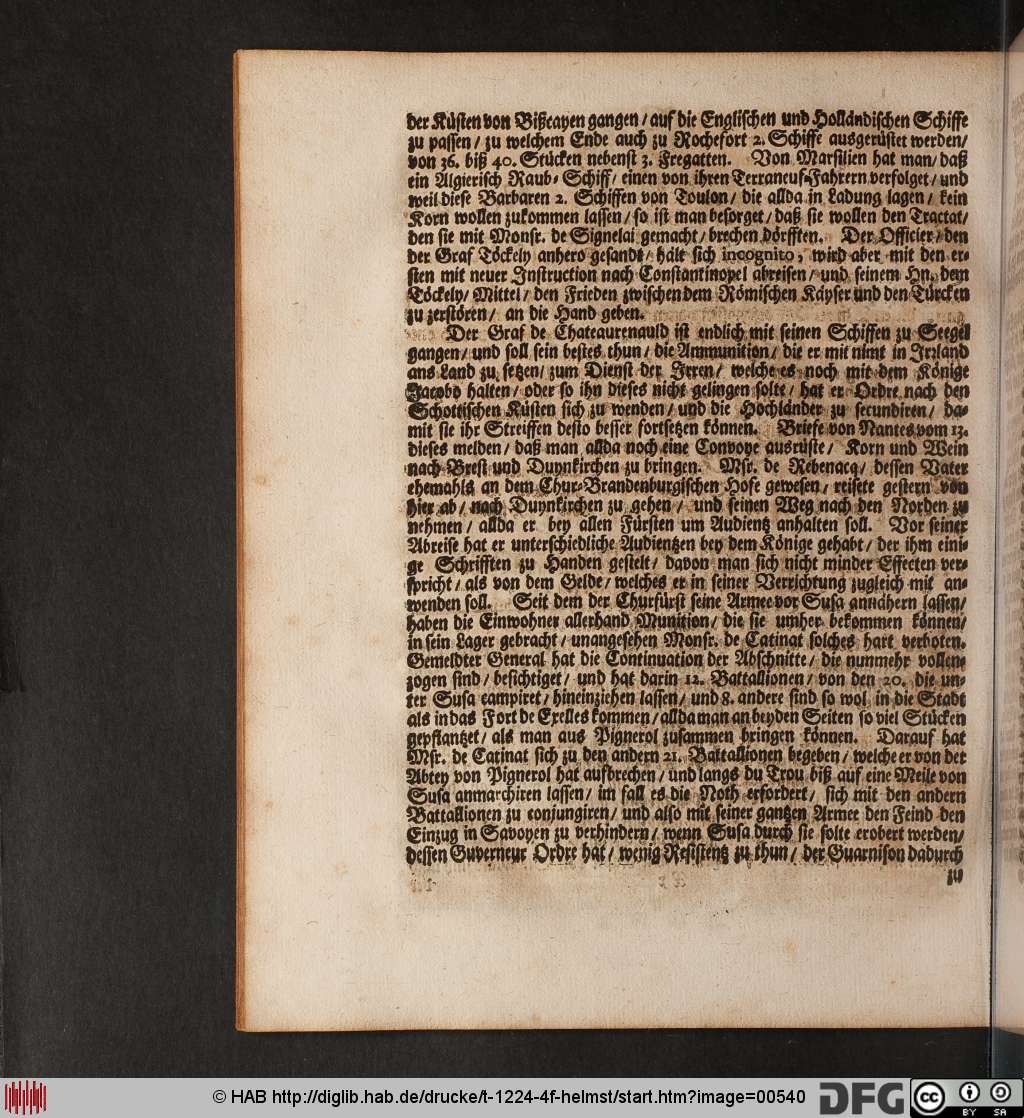 der Küsten von Bißcayen gangen / auf die Englischen und Holländischen Schiffe
zu passen / zu welchem Ende auch zu Rochefort 2. Schiffe ausgerüstet werden /
von 36. biß 40. Stücken nebenst 3. Fregatten. Von Marsilien hat man / daß
ein Algierisch Raub-Schiff / einen von ihren Terraneuf-Fahrern verfolget / und
weil diese Barbaren 2. Schiffen von Toulon / die allda in Ladung lagen / kein
Korn wollen zukommen lassen / so ist man besorget / daß sie wollen den Tractat /
den sie mit Monsr. de Signelai gemacht / brechen dörfften. Der Officier / den
der Graf Töckely anhero gesandt / hält sich incognito, wird aber mit den er-
sten mit neuer Instruction nach Constantinopel abreisen / und seinem Hn. dem
Töckely / Mittel / den Frieden zwischen dem Römischen Käyser und den Türcken
zu zerstören / an die Hand geben.
Der Graf de Chateaurenauld ist endlich mit seinen Schiffen zu Seegel
gangen / und soll sein bestes thun / die Ammunition / die er mit nimt in Irrland
ans Land zu setzen / zum Dienst der Jrren / welche es noch mit dem Könige
Jacobo halten / oder so ihn dieses nicht gelingen solte / hat er Ordre nach den
Schottischen Küsten sich zu wenden / und die Hochländer zu secundiren / da-
mit sie ihr Streiffen desto besser fortsetzen können. Briefe von Nantes vom 13.
dieses melden / daß man allda noch eine Convoye ausrüste / Korn und Wein
nach Brest und Duynkirchen zu bringen. Msr. de Rebenacq / dessen Vater
ehemahls an dem Chur-Brandenburgischen Hofe gewesen / reisete gestern von
hier ab / nach Duynkirchen zu gehen / und seinen Weg nach den Norden zu
nehmen / allda er bey allen Fürsten um Audientz anhalten soll. Vor seiner
Abreise hat er unterschiedliche Audientzen bey dem Könige gehabt / der ihm eini-
ge Schrifften zu Handen gestelt / davon man sich nicht minder Effecten ver-
spricht / als von dem Gelde / welches er in seiner Verrichtung zugleich mit an-
wenden soll. Seit dem der Churfürst seine Armee vor Susa annähern lassen /
haben die Einwohner allerhand Munition / die sie umher bekommen können /
in sein Lager gebracht / unangesehen Monsr. de Catinat solches hart verboten.
Gemeldter General hat die Continuation der Abschnitte / die nunmehr vollen-
zogen sind / besichtiget / und hat darin 12. Battallionen / von den 20. die un-
ter Susa campiret / hineinziehen lassen / und 8. andere sind so wol in die Stadt
als in das Fort de Exelles kommen / allda man an beyden Seiten so viel Stücken
gepflantzet / als man aus Pignerol zusammen bringen können. Darauf hat
Msr. de Catinat sich zu den andern 21. Battallionen begeben / welche er von der
Abtey von Pignerol hat aufbrechen / und langs du Trou biß auf eine Meile von
Susa anmarchiren lassen / im fall es die Noth erfordert / sich mit den andern
Battallionen zu conjungiren / und also mit seiner gantzen Armee den Feind den
Einzug in Savoyen zu verhindern / wenn Susa durch sie solte erobert werden /
dessen Guverneur Ordre hat / wenig Resistentz zu thun / der Guarnison dadurch
zu
© HAB http://diglib.hab.de/drucke/t-1224-4f-helmst/start.htm?image=00540
DFG
cc
BY SA